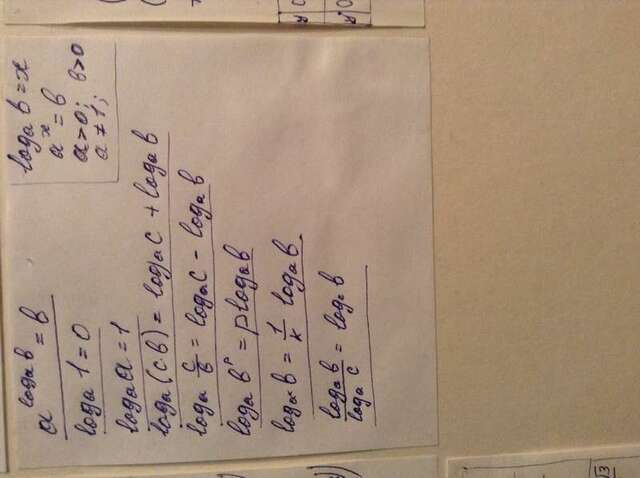 log_a b = x
a^x = b
a > 0; b > 0
a ≠ 1;
a^(log_a b) = b
log_a 1 = 0
log_a a = 1
log_a (c·b) = log_a c + log_a b
log_a c/b = log_a c - log_a b
log_a b^p = p log_a b
log_a^k b = 1/k log_a b
log_a b / log_a c = log_c b